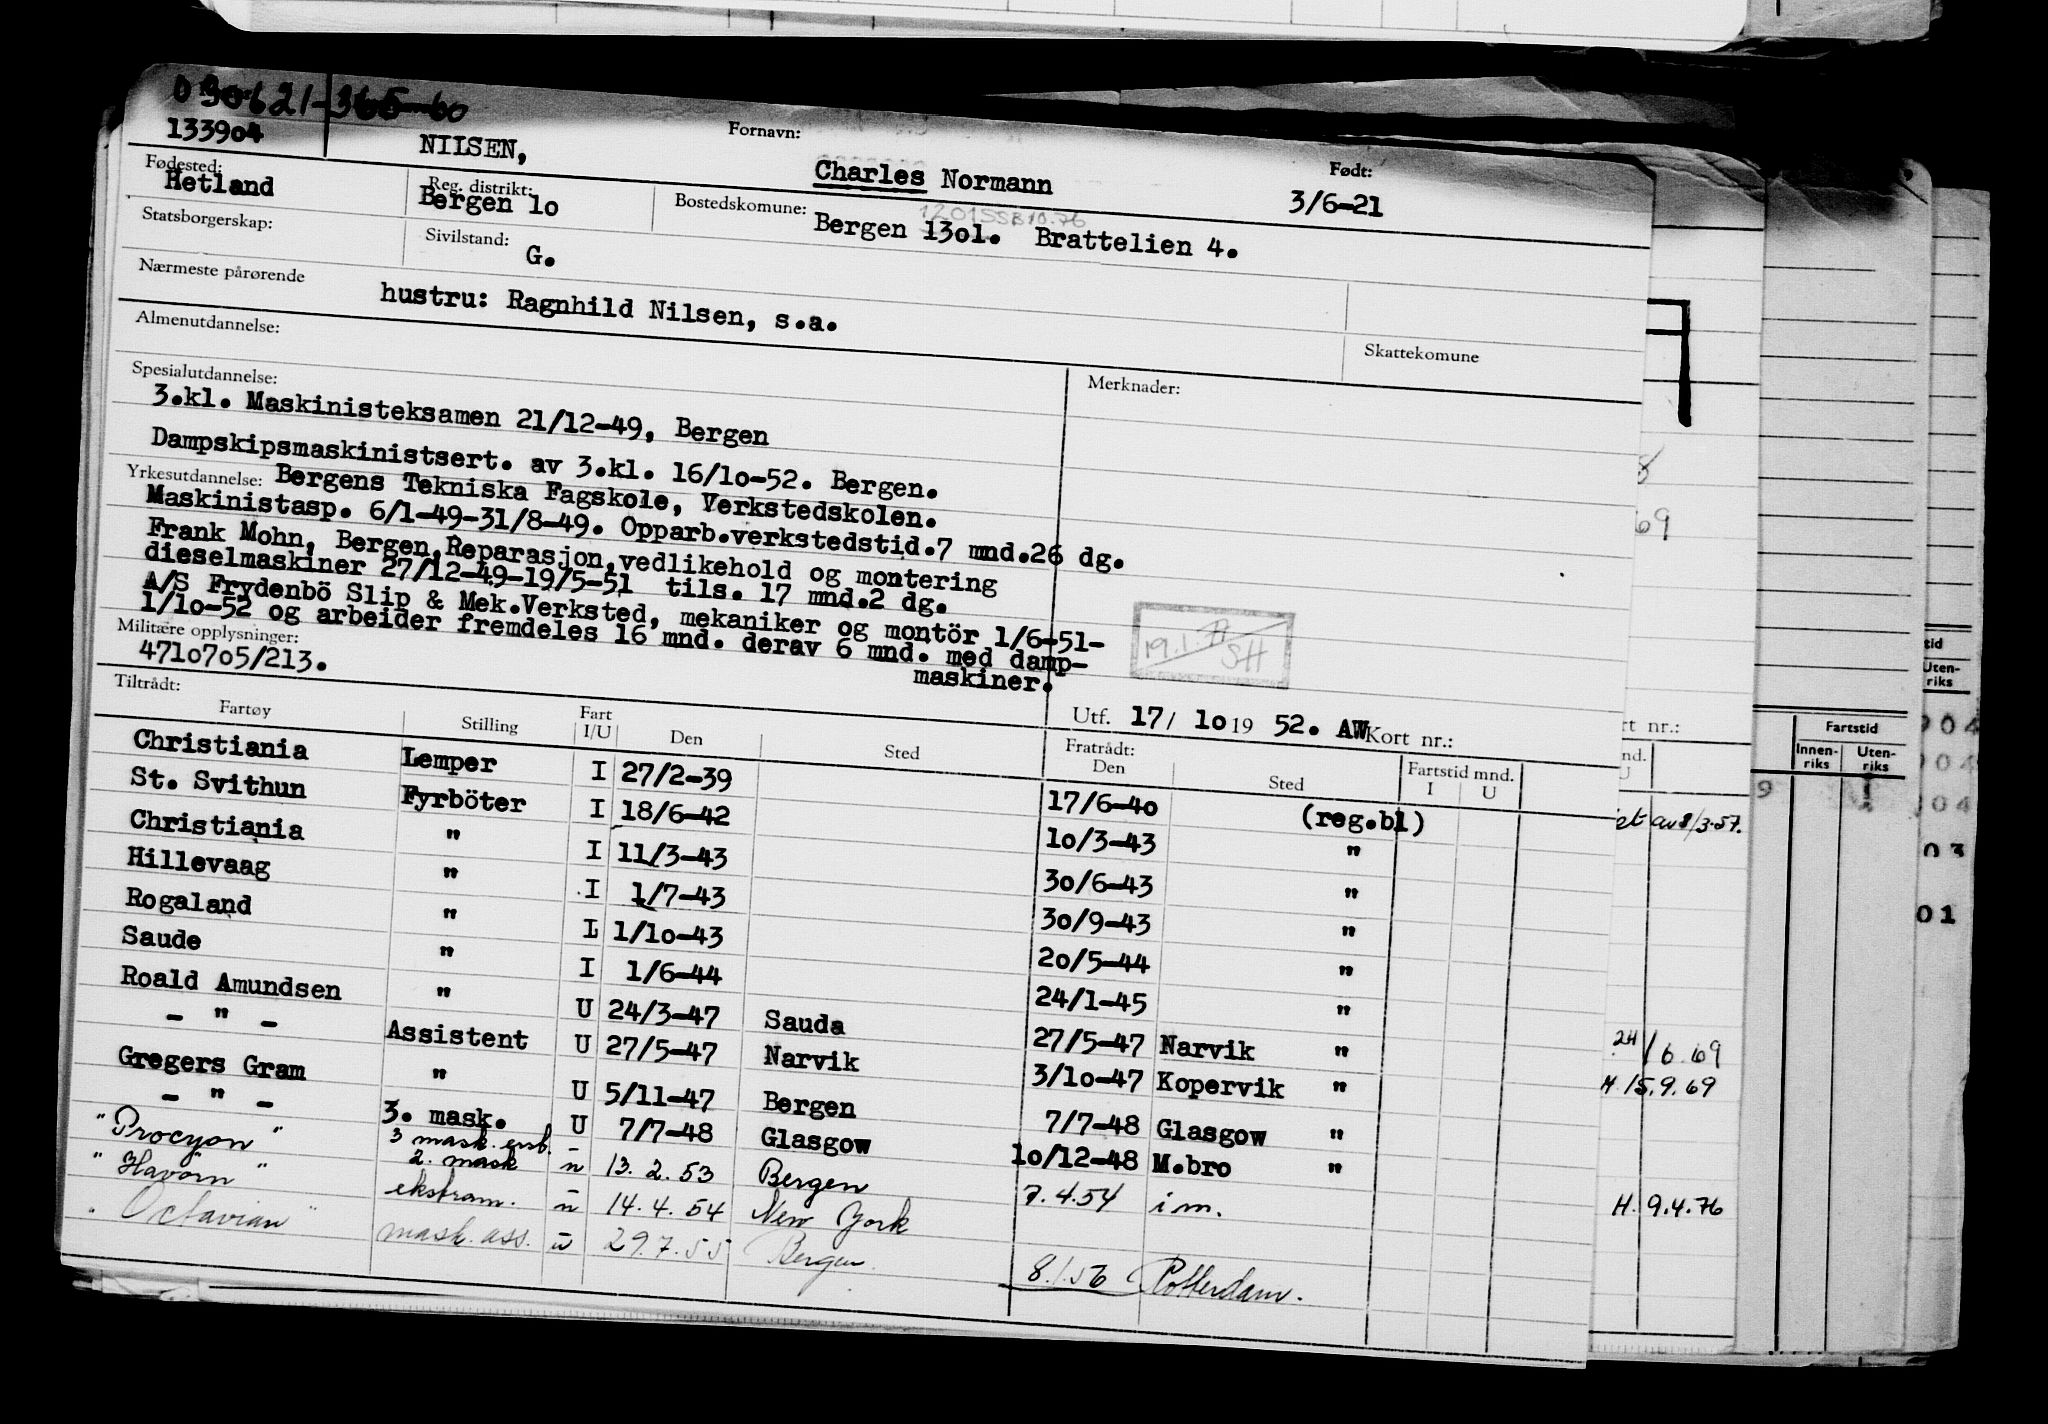 030621-365-60
133904 NILSEN, Fornavn: Charles Normann Født: 3/6-21
Fødested: Hetland Reg. distrikt: Bergen 1o Bostedskomune: Bergen 13o1. Brattelien 4.
1201SSB10.76
Statsborgerskap: Sivilstand: G.
Nærmeste pårørende hustru: Ragnhild Nilsen, s.a.
Almenutdannelse: Skattekomune
Spesialutdannelse: Merknader:
3.kl. Maskinisteksamen 21/12-49, Bergen
Dampskipsmaskinistsert. av 3.kl. 16/1o-52. Bergen.
Yrkesutdannelse: Bergens Tekniska Fagskole, Verkstedskolen.
Maskinistasp. 6/1-49-31/8-49. Opparb.verkstedstid.7 mnd.26 dg.
Frank Mohn, Bergen,Reparasjon,vedlikehold og montering
dieselmaskiner 27/12-49-19/5-51 tils. 17 mnd.2 dg.
A/S Frydenbö Slip & Mek.Verksted, mekaniker og montör 1/6-51-
1/1o-52 og arbeider fremdeles 16 mnd. derav 6 mnd. med damp-
maskiner.
Militære opplysninger:
471o7o5/213.
19.1.77 SH
Tiltrådt: Utf. 17/ 1o 19 52. AW Kort nr.:
Fartøy Stilling Fart I/U Den Sted Fratrådt: Den Sted Fartstid mnd. I U
Christiania Lemper I 27/2-39 17/6-4o (reg.bl)
St. Svithun Fyrböter I 18/6-42 1o/3-43 "
Christiania " I 11/3-43 3o/6-43 "
Hillevaag " I 1/7-43 3o/9-43 "
Rogaland " I 1/1o-43 2o/5-44 "
Saude " I 1/6-44 24/1-45 "
Roald Amundsen " U 24/3-47 Sauda 27/5-47 Narvik "
- " - Assistent U 27/5-47 Narvik 3/1o-47 Kopervik "
Gregers Gram " U 5/11-47 Bergen 7/7-48 Glasgow "
- " - 3. mask. U 7/7-48 Glasgow 1o/12-48 M.bro "
"Procyon" 3 mask. ersb. 2. mask u 13. 2. 53 Bergen 7.4.54 i m.
"Havörn" ekstram. u 14. 4. 54 New York
"Octavian" mask. ass. u 29.7.55 Bergen. 8.1.56 Rotterdam.
8
69
rt nr.:
nd.
U
et av 8/3-57.
24/6.69
H. 15.9.69
H. 9.4.76
Fartstid
Innen-riks Uten-riks
9
tid
Uten-riks
904
904
904
03
01